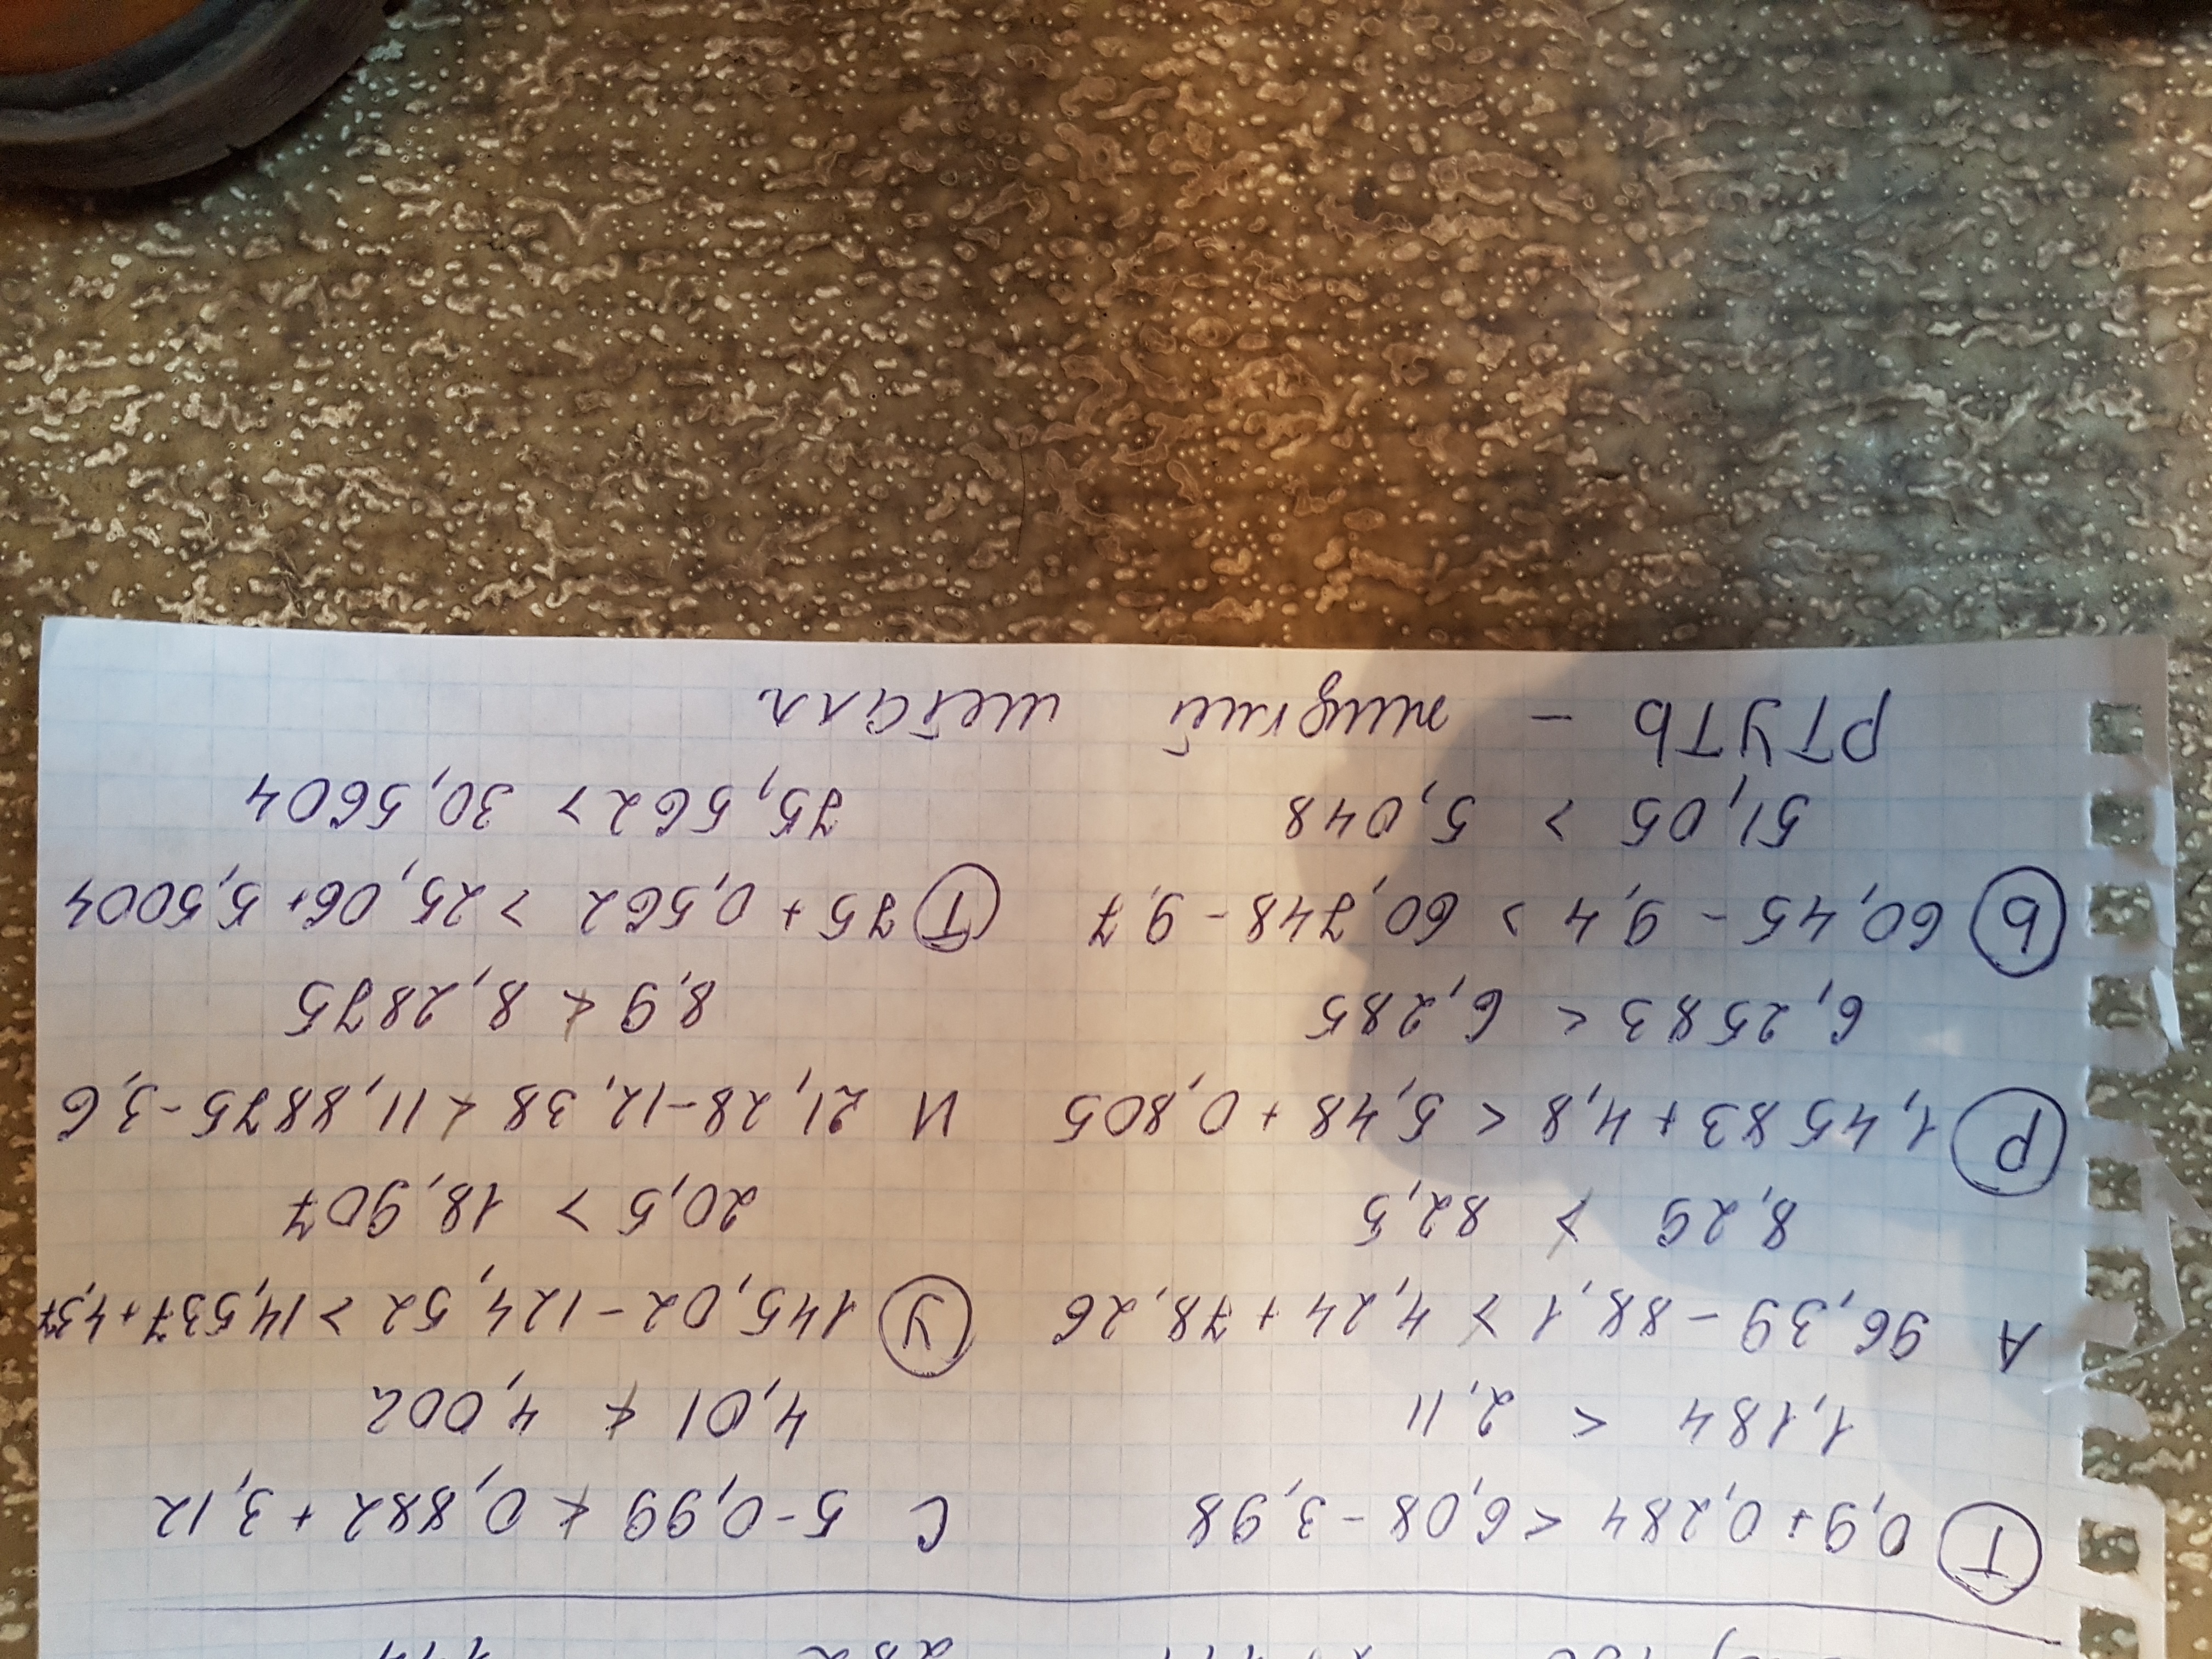 Т 0,9+0,284 < 6,08-3,98 С 5-0,99 ≮ 0,882+3,12
1,184 < 2,11 4,01 ≮ 4,002
А 96,39-88,1 ≯ 4,24+78,26 У 145,02-124,52 > 14,537+4,37
8,29 ≯ 82,5 20,5 > 18,907
Р 1,4583+4,8 < 5,48+0,805 И 21,28-12,38 ≮ 11,8875-3,6
6,2583 < 6,285 8,9 ≮ 8,2875
Ь 60,45-9,4 > 60,748-9,7 Т 75+0,562 > 25,06+5,5004
51,05 > 5,048 75,562 > 30,5604
РТУТЬ - жидкий металл